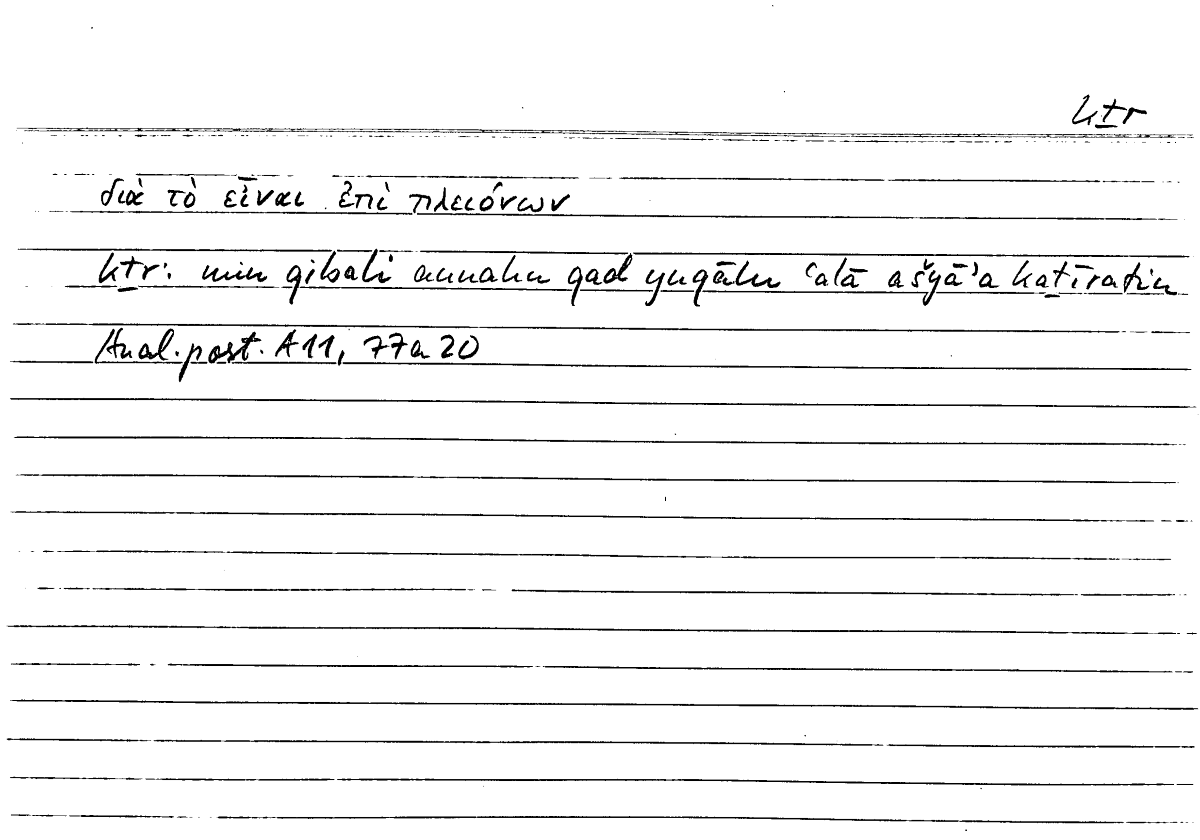 kṯr
διὰ τὸ εἶναι ἐπὶ πλειόνων
kṯr: min qibali annahu qad yuqālu ʿalā ašyāʾa kaṯīratin
Anal. post. A 11, 77a 20